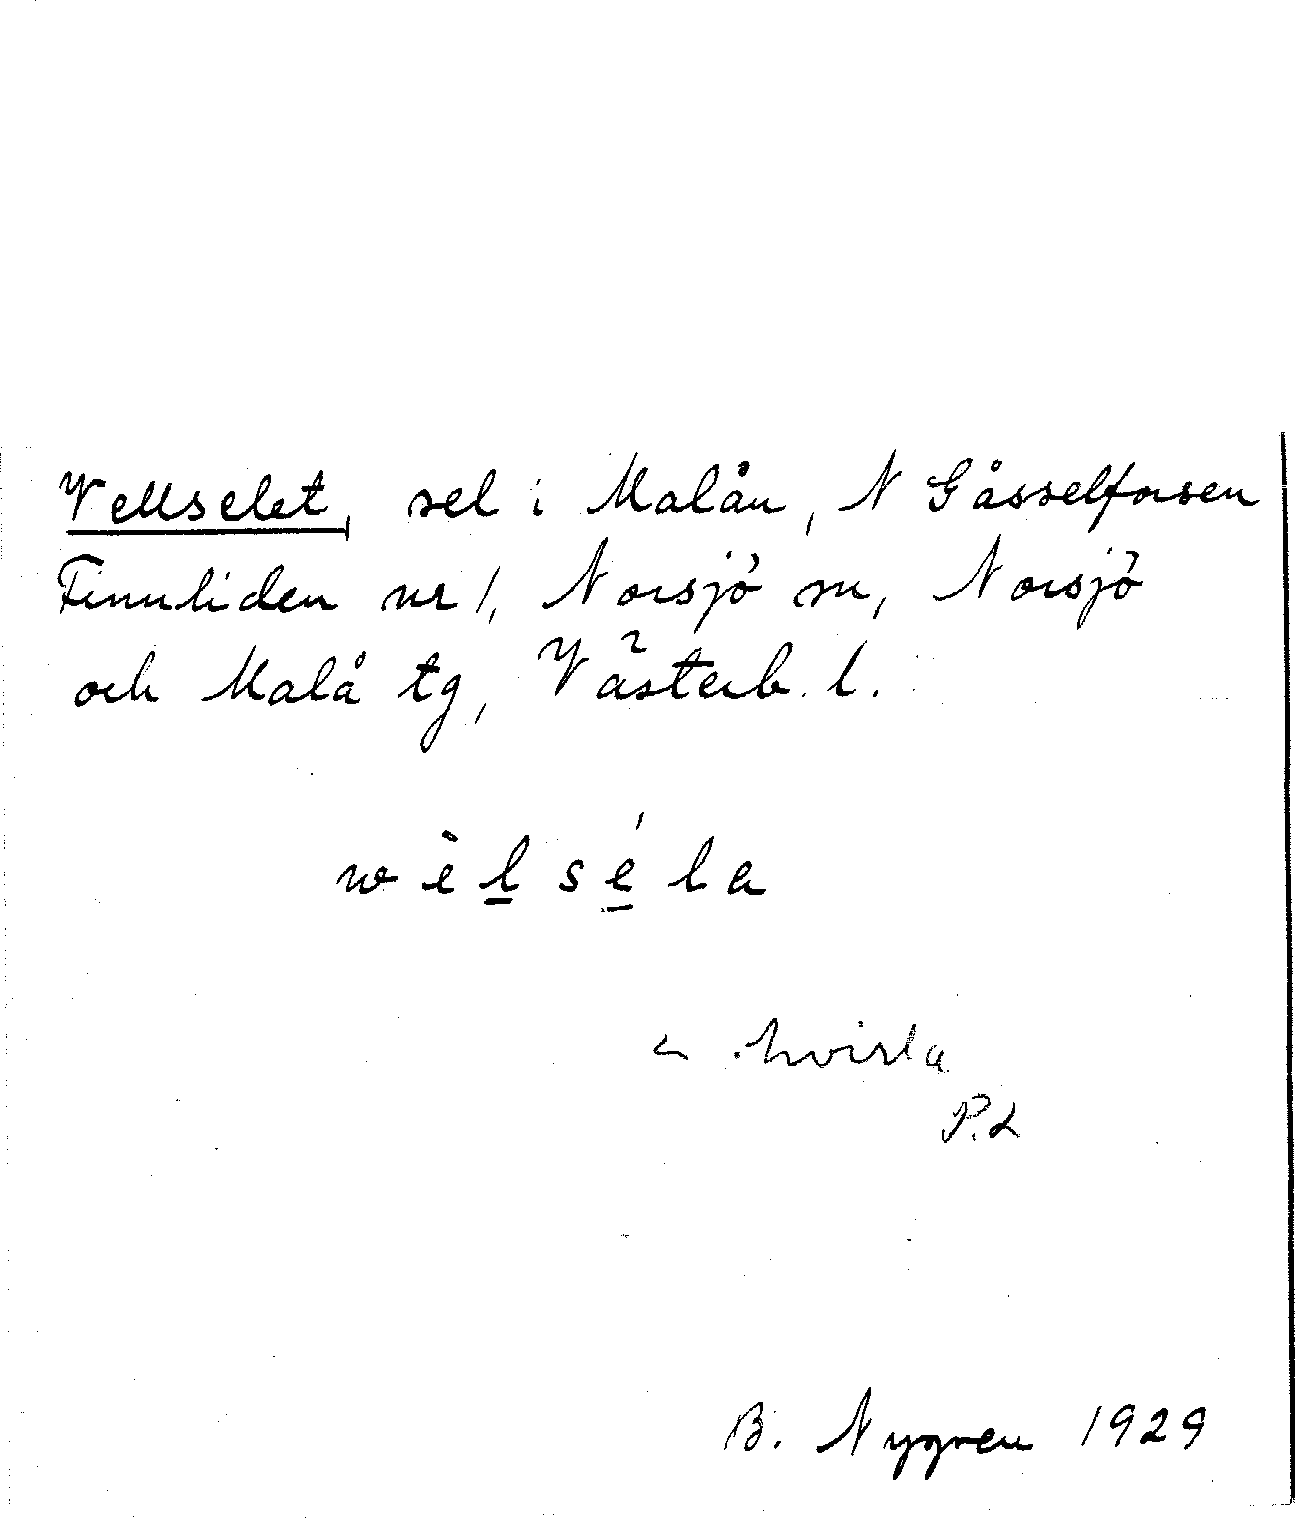 Vellselet, sel i Malån, N Gåsselforsen
Finnliden nr 1, Norsjö sn, Norsjö
och Malå tg, Västerb. l.
wèl̲sé̲la
< hvirla
P.L
B. Nygren 1929